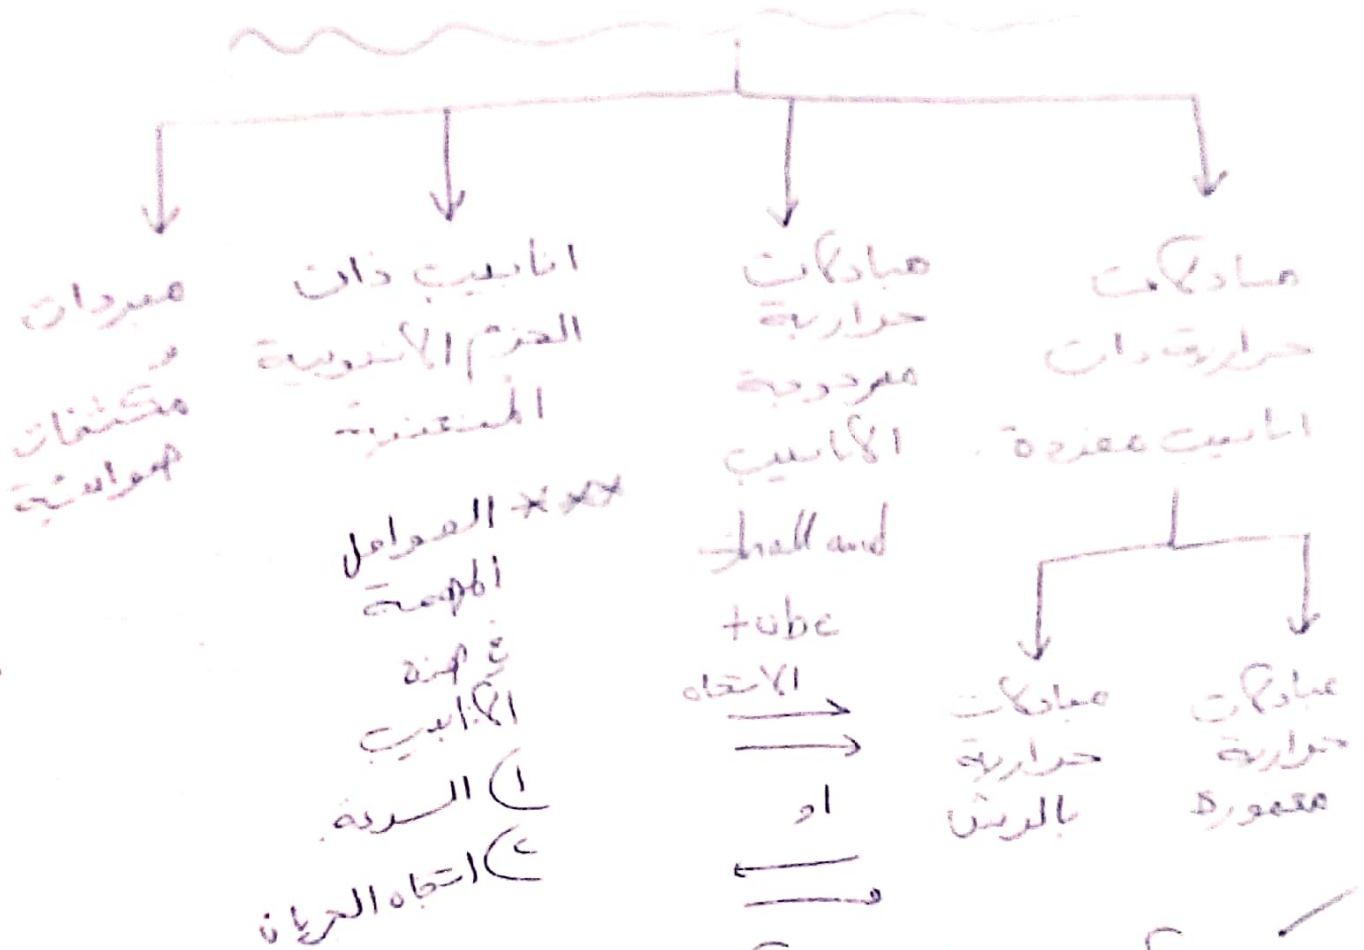 مبادلات
حرارية ذات
انابيب مفردة
مبادلات
حرارية
مغمورة
مبادلات
حرارية
بالرش
مبادلات
حرارية
مزدوجة
الأنابيب
shell and
tube
الاتجاه
او
انابيب ذات
الحزم الأنبوبية
*** العوامل
المهمة
في هذه
الأنابيب
١) السرعة
٢) اتجاه الجريان
مبردات
و
مكثفات
هوائية